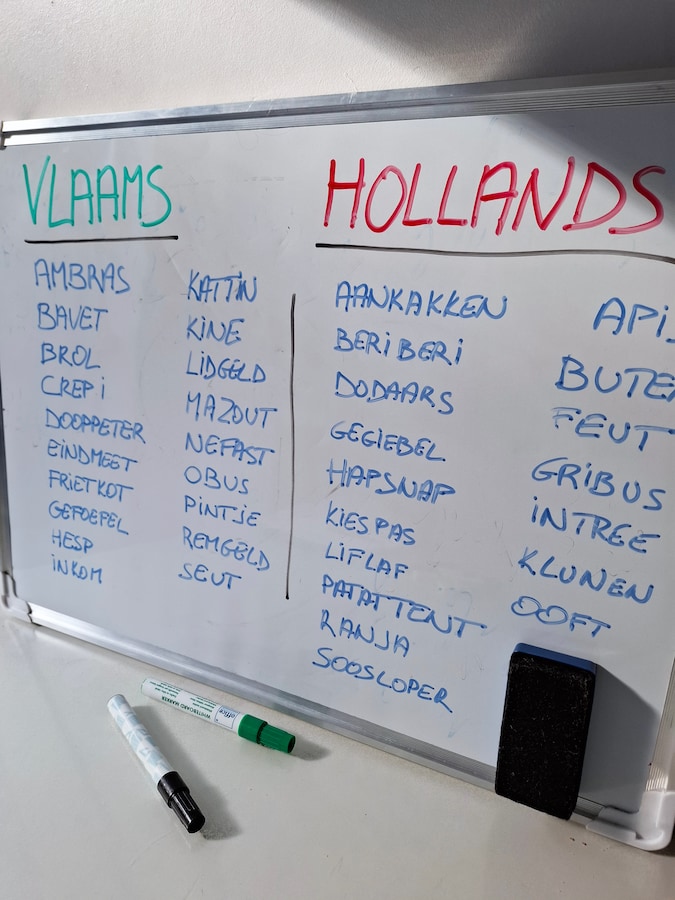 VLAAMS
AMBRAS
BAVET
BROL
CREPI
DOOPPETER
EINDMEET
FRIETKOT
GEFOEFEL
HESP
INKOM
KATTIN
KINE
LIDGELD
MAZOUT
NEFAST
OBUS
PINTJE
REMGELD
SEUT
HOLLANDS
AANKAKKEN
BERIBERI
DODAARS
GEGIEBEL
HAPSNAP
KIESPAS
LIFLAF
PATATTENT
RANJA
SOOSLOPER
FEUT
GRIBUS
INTREE
KLUNEN
OOFT
WHITEBOARD MARKER
office